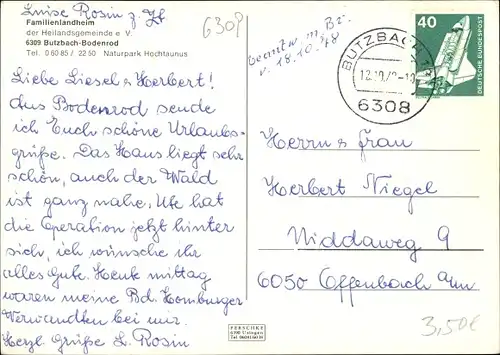 Luise Rosin z. Zt
Familienlandheim
der Heilandsgemeinde e. V.
6309 Butzbach-Bodenrod
Tel. 0 60 85 / 22 50 Naturpark Hochtaunus
Liebe Liesel & Herbert!
Aus Bodenrod sende
ich Euch schöne Urlaubs-
grüße. Das Haus liegt sehr
schön, auch der Wald
ist ganz nahe. Ute hat
die Operation jetzt hinter
sich, ich wünsche ihr
alles Gute. Heute mittag
waren meine Bd. Homburger
Verwandten bei mir.
Herzl. Grüße L. Rosin
630P
beantw. m. Br.
v. 18.10.78
BUTZBACH
6308
40
DEUTSCHE BUNDESPOST
Herrn & Frau
Herbert Niegel
Niddaweg 9
6050 Offenbach a/m
3,50€
PERSCHKE